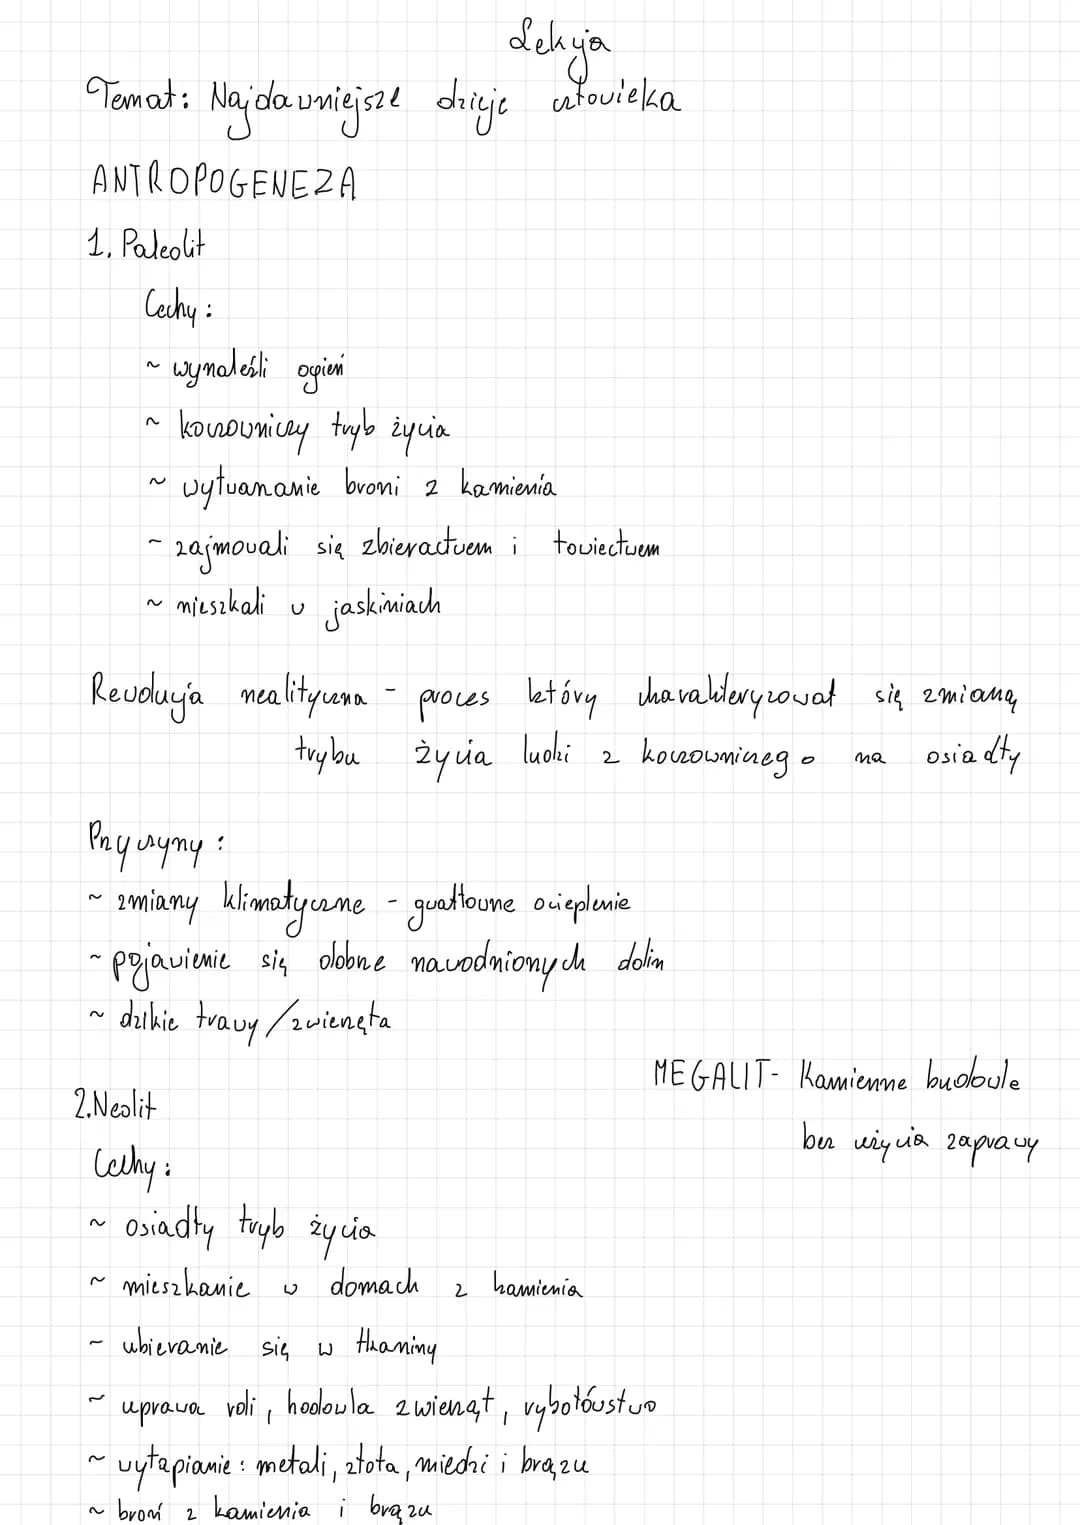 Lekcja
Temat: Najdawniejsze dzieje człowieka
ANTROPOGENEZA
1. Paleolit
Cechy:
~ wynaleźli ogień
~ koczowniczy tryb życia
~ wytwarzanie broni z kamienia
~ zajmowali się zbieractwem i łowiectwem
~ mieszkali w jaskiniach
Rewolucja nealityczna - proces który charakteryzował się zmianą
trybu życia ludzi z koczowniczego na osiadły
Przyczyny:
~ zmiany klimatyczne - gwałtowne ocieplenie
~ pojawienie się dobrze nawodnionych dolin
~ dzikie trawy/zwierzęta
MEGALIT- Kamienne budowle
bez użycia zaprawy
2. Neolit
Cechy:
~ osiadły tryb życia
~ mieszkanie w domach z kamienia
~ ubieranie się w tkaniny
~ uprawa roli, hodowla zwierząt, rybołówstwo
~ wytapianie: metali, złota, miedzi i brązu
~ broń z kamienia i brązu